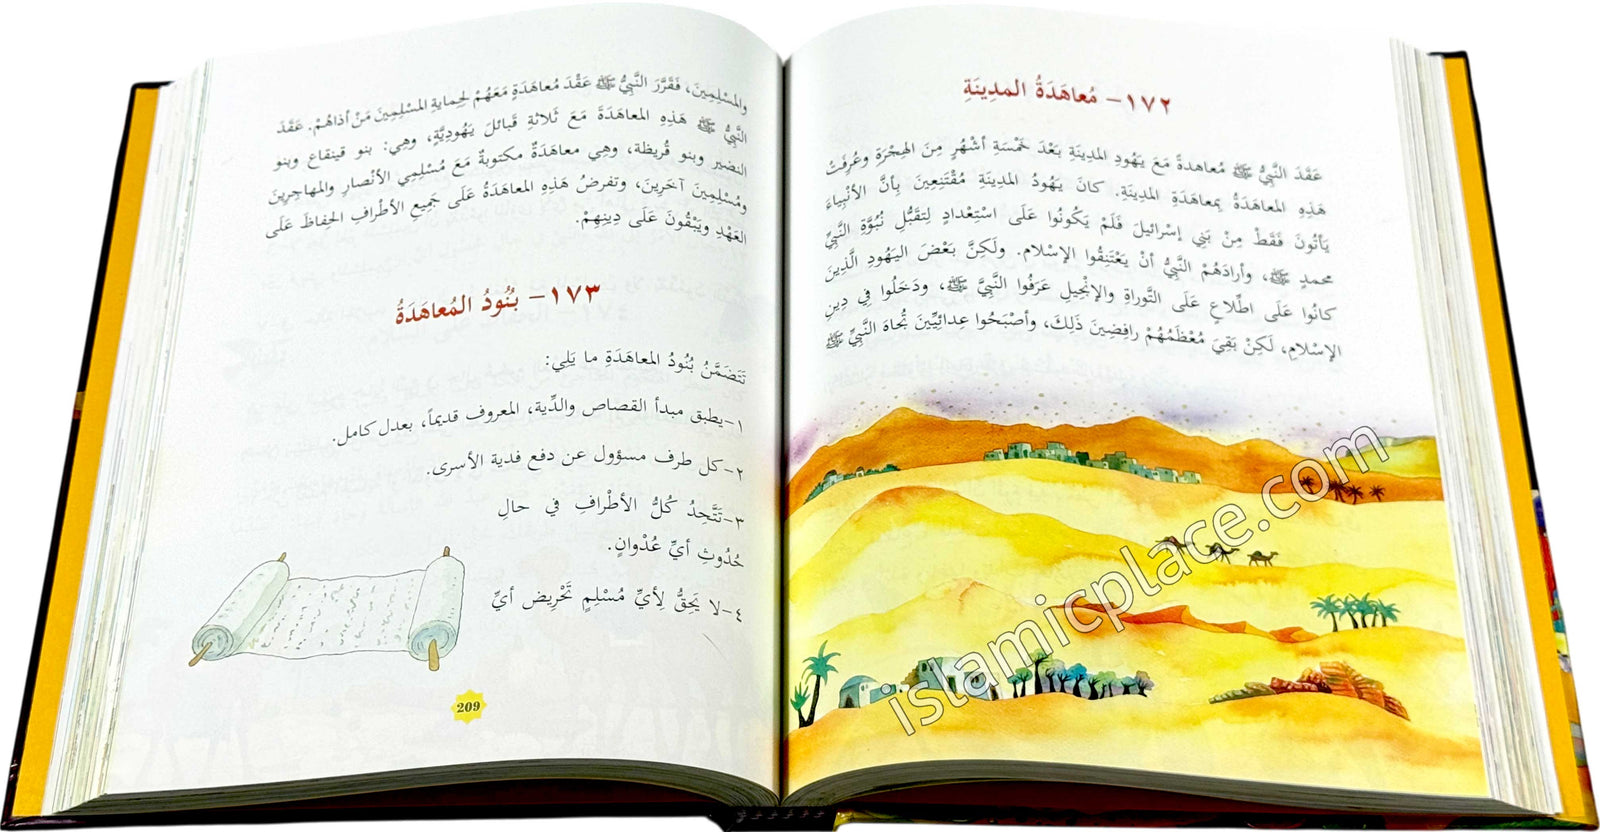 ١٧٢- مُعاهَدَةُ المدِينَةِ
عَقَدَ النَّبِيُّ ﷺ مُعاهدةً مَعَ يَهُودِ المدِينَةِ بَعْدَ خَمْسَةِ أشْهُرٍ مِنَ الهِجْرَةِ وعُرِفَتْ
هَذِهِ المعاهَدَةُ بِمعاهَدَةِ المدِينَةِ. كانَ يَهُودُ المدِينَةِ مُقْتَنِعِينَ بِأنَّ الأنْبِياءَ
يَأتُونَ فَقَطْ مِنْ بَنِي إسْرائيلَ فَلَمْ يَكُونُوا عَلَى اسْتِعْدادٍ لِتقَبُّلِ نُبُوَّةِ النَّبِيِّ
محمدٍ ﷺ، وأرادَهُمْ النَّبِيُّ أنْ يَعْتَنِقُوا الإسْلام. ولَكِنَّ بَعْضَ اليَهُودِ الَّذِينَ
كانُوا عَلَى اطِّلاعٍ عَلَى التَّوراةِ والإنْجِيلِ عَرَفُوا النَّبِيَّ ﷺ، ودَخَلُوا فِي دِينِ
الإسْلامِ، لَكِنْ بَقِيَ مُعْظَمُهُمْ رافِضِينَ ذَلِكَ، وأصْبَحُوا عِدائِيِّينَ تُجاهَ النَّبِيِّ ﷺ
islamicplace.com
والمسْلِمِينَ، فَقَرَّرَ النَّبِيُّ ﷺ عَقْدَ مُعاهَدَةٍ مَعَهُمْ لِحِمايةِ المسْلِمِينَ مَنْ أذاهُمْ. عَقَدَ
النَّبِيُّ ﷺ هَذِهِ المعاهَدَةَ مَعَ ثَلاثَةِ قَبائلَ يَهُودِيَّةٍ، وهِيَ: بنو قينقاع وبنو
النضير وبنو قُريظة، وهِيَ معاهَدَةٌ مكتوبةٌ مَعَ مُسْلِمِي الأنْصارِ والمهاجِرِينَ
ومُسْلِمِينَ آخَرِينَ، وتفرضُ هَذِهِ المعاهَدَةُ عَلَى جَمِيعِ الأطْرافِ الحِفاظَ عَلَى
العَهْدِ ويَبْقُونَ عَلَى دِينِهِمْ.
١٧٣- بُنُودُ المُعاهَدَةُ
تَتَضَمَّنُ بُنُودُ المعاهَدَةِ ما يَلِي:
١-يطبق مبدأ القصاص والدِّية، المعروف قديماً، بعدل كامل.
٢-كل طرف مسؤول عن دفع فدية الأسرى.
٣-تَتَّحِدُ كُلُّ الأطْرافِ فِي حالِ
حُدُوثِ أيِّ عُدْوانٍ.
٤-لا يَحِقُّ لِأيِّ مُسْلِمٍ تَحْرِيض أيِّ
209